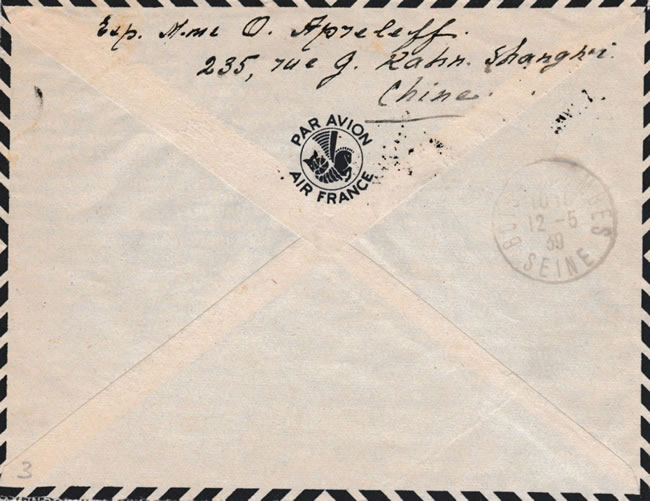 Exp. Mme O. Apreleff.
235, rue G. Kahn. Shanghai.
Chine.
PAR AVION
AIR FRANCE
12 - 5
39
SEINE
3